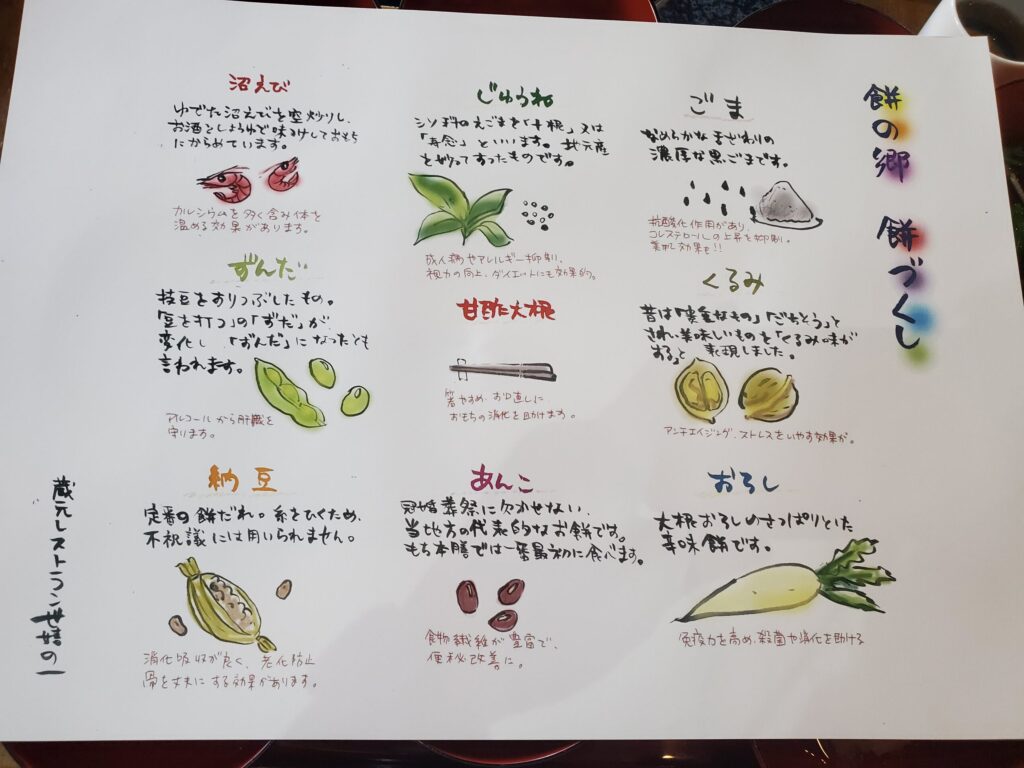 餅の郷 餅づくし
ごま
なめらかな舌ざわりの
濃厚な黒ごまです。
抗酸化作用があり、
コレステロールの上昇を抑制。
美肌効果も!!
くるみ
昔は「貴重なもの」「ごちそう」と
され、美味しいものを「くるみ味が
する」と 表現しました。
アンチエイジング、ストレスをいやす効果が。
おろし
大根おろしのさっぱりとした
辛味餅です。
免疫力を高め、殺菌や消化を助ける
じゅうね
シソ科のえごまを「十稔」又は
「寿念」といいます。地元産
を炒ってすったものです。
成人病やアレルギー抑制、
視力の向上、ダイエットにも効果的。
甘酢大根
箸やすめ、お口直しに
おもちの消化を助けます。
あんこ
冠婚葬祭に欠かせない、
当地方の代表的なお餅です。
もち本膳では一番最初に食べます。
食物繊維が豊富で、
便秘改善に。
沼えび
ゆでた沼えびを空炒りし、
お酒としょうゆで味つけしておもち
にからめています。
カルシウムを多く含み体を
温める効果があります。
ずんだ
枝豆をすりつぶしたもの。
「豆を打つ」の「ずだ」が、
変化し 「ずんだ」になったとも
言われます。
アルコールから肝臓を
守ります。
納豆
定番の餅だれ。糸をひくため、
不祝議には用いられません。
消化吸収が良く、老化防止
骨を丈夫にする効果があります。
蔵元レストラン世嬉の一